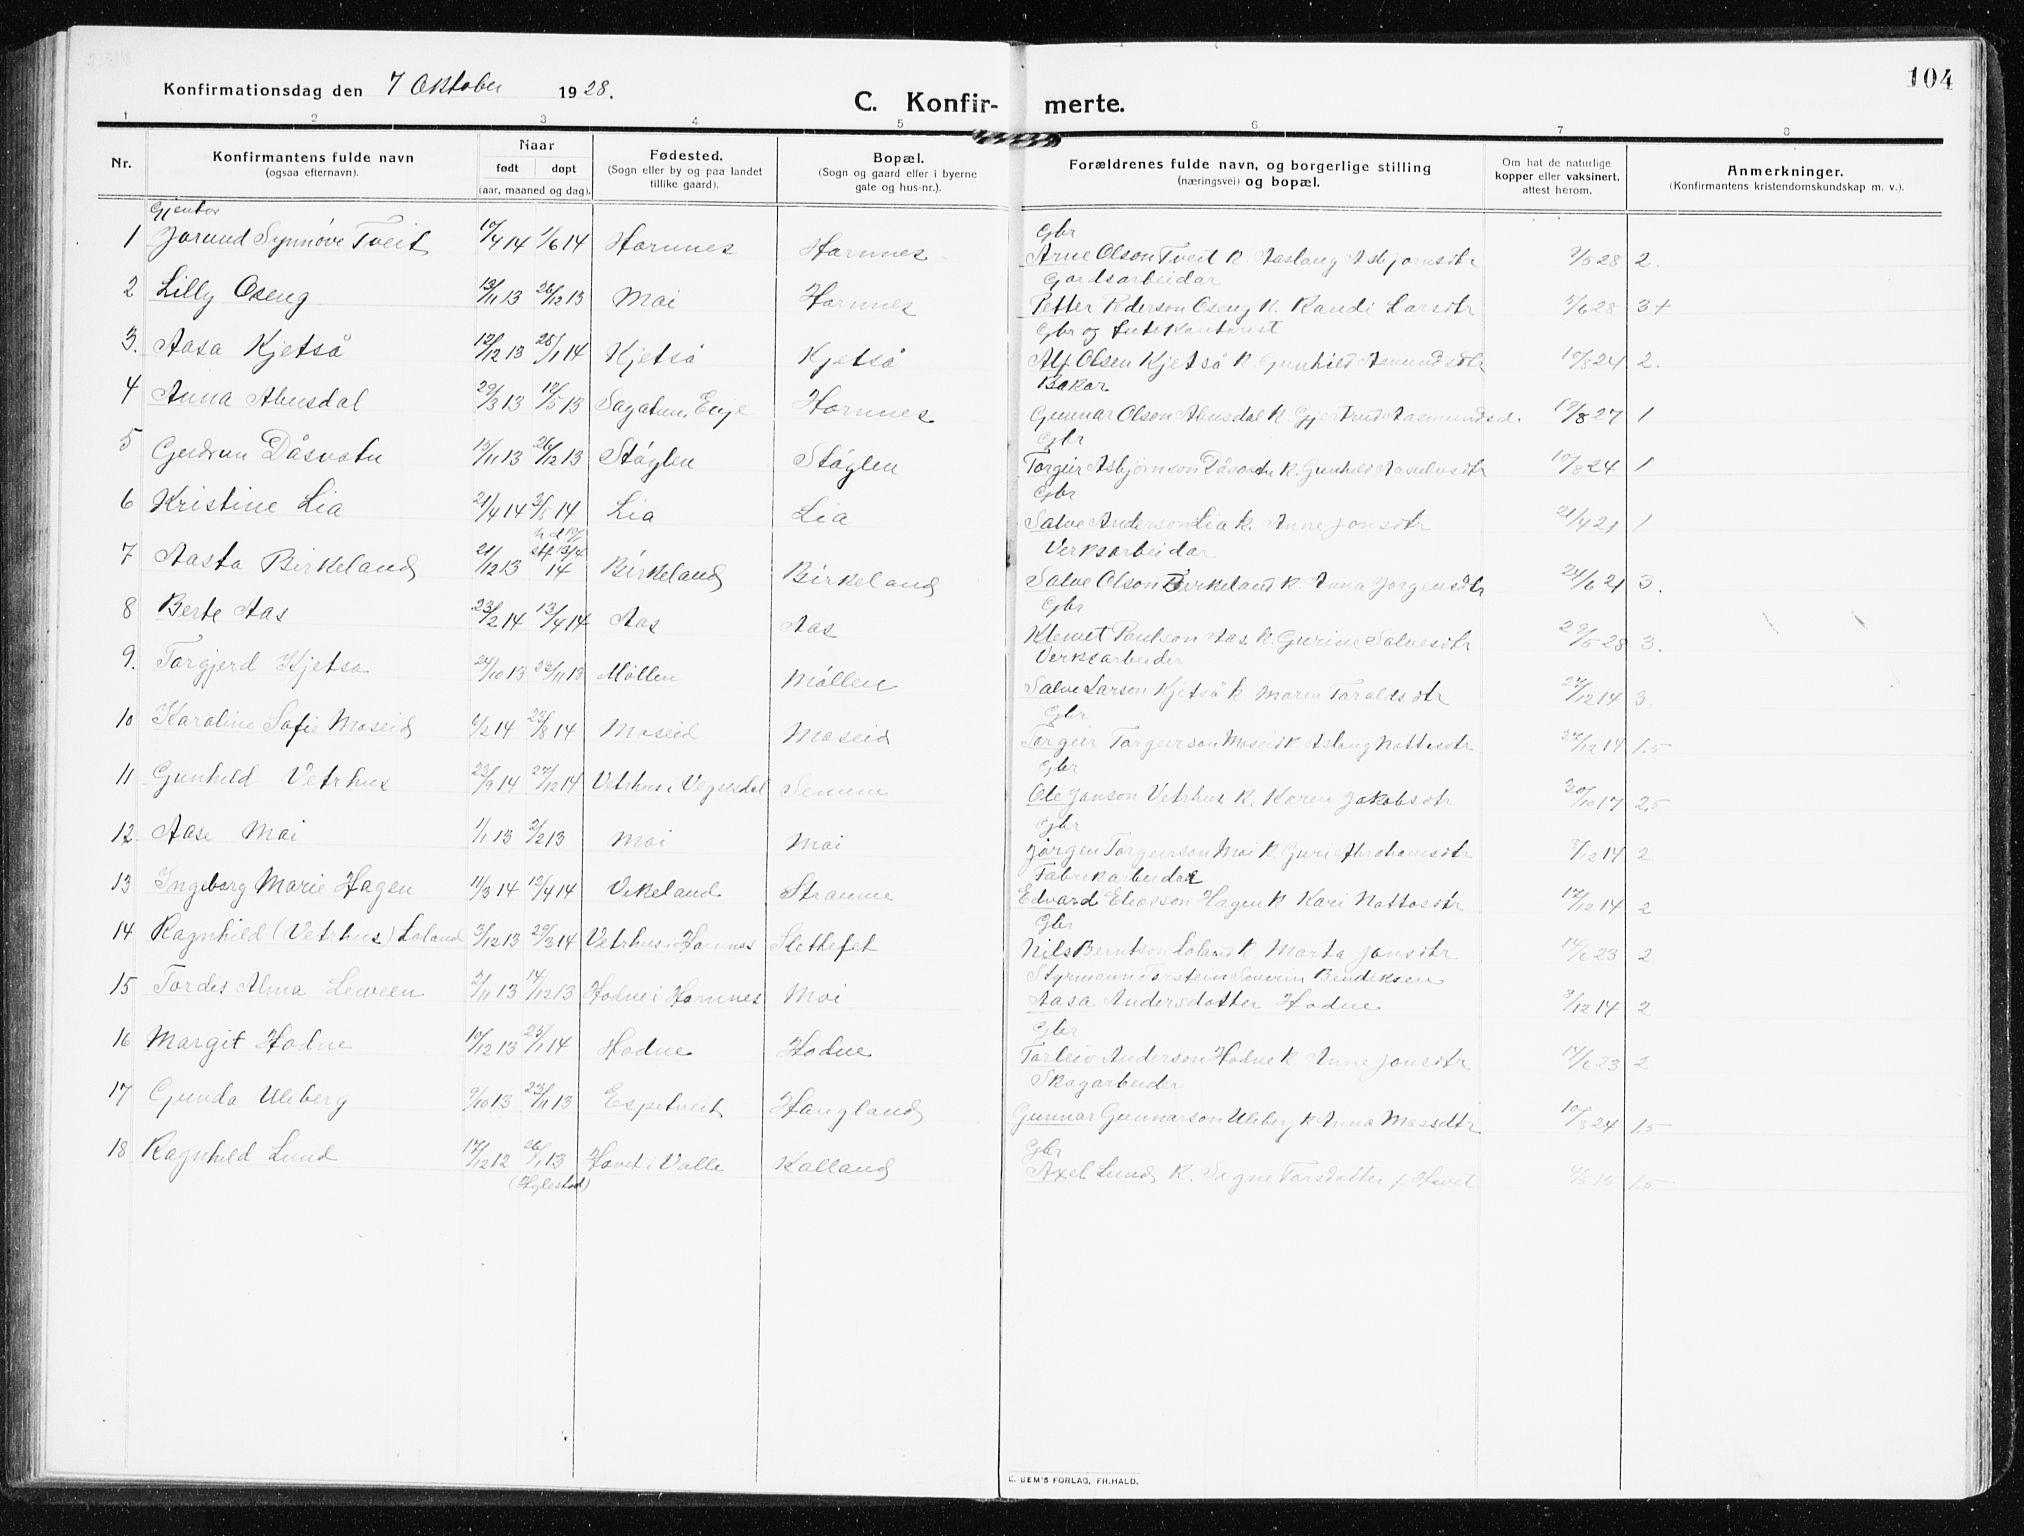 104
Konfirmationsdag den 7 Oktober 1928.
C. Konfir- merte.
1 2 3 4 5 6 7 8
Nr.
Konfirmantens fulde navn
(ogsaa efternavn).
Naar
født døpt
(aar, maaned og dag).
Fødested.
(Sogn eller by og paa landet
tillike gaard).
Bopæl.
(Sogn og gaard eller i byerne
gate og hus-nr.).
Forældrenes fulde navn, og borgerlige stilling
(næringsvei) og bopæl.
Om hat de naturlige
kopper eller vaksinert,
attest herom.
Anmerkninger.
(Konfirmantens kristendomskundskap m. v.).
Gjentor
Gbr
1 Jorund Synnøve Tveit 10/4 14 1/6 14 Hornnes Hornnes Arne Olson Tveit k. Aaslaug Asbjørnsdtr 9/5 28 2.
Gardsarbeidar
2 Lilly Oseng 13/11 13 26/12 13 Moi Hornnes Petter Pederson Oseng k. Randi Larsdtr 3/6 28 3+
Gbr og
3. Aasa Kjetså 12/12 13 25/1 14 Kjetså Kjetså Alf Olsen Kjetså k. Gunhild Asmundsdtr 10/8 24 2.
Bakar
4 Anna Abusdal 29/3 13 12/5 13 Sagatun, Evje Hornnes Gunnar Olson Abusdal k. Gjertrud Aasmundsd. 19/8 27 1
Gbr
5 Gudrun Dåsvatn 15/11 13 26/12 13 Støylen Støylen Torgeir Asbjørnson Dåsvatn k. Gunhild Aasulvsdtr 10/8 24 1
Gbr
6 Kristine Lia 21/4 14 3/5 14 Lia Lia Salve Anderson Lia k. Anne Jonsdtr 21/4 21 1
Verksarbeidar
7 Aasta Birkeland 21/12 13 13/4 14 Birkeland Birkeland Salve Olson Birkeland k. Anna Jørgensdtr 24/6 21 3.
Gbr
8 Berte Aas 23/2 14 13/4 14 Aas Aas Klemet Paulson Aas k. Gurine Salvesdtr 29/5 28 3.
Verksarbeider
9. Torgjerd Kjetså 24/10 13 23/11 13 Mollen Møllen Salve Larson Kjetså k Maren Taraldsdtr 27/12 14 3
Gbr
10 Karoline Sofie Moseid 6/2 14 23/8 14 Moseid Moseid Torgeir Torgeirson Moseid k Aslaug Nottosdtr 27/12 14 1,5
Gbr
11 Gunhild Vetrhus 23/9 14 27/12 14 Vetrhus i Vegusdal Senum Ole Jonson Vetrhus k. Karen Jakobsdtr 20/10 17 2,5
Gbr
12 Aase Moi 1/1 13 2/2 13 Moi Moi Jørgen Torgeirson Moi k. Guri Abrahamsdtr 8/12 14 2
Fabrikarbeidar
13 Ingeborg Marie Hagen 11/3 14 13/4 14 Vikeland Straume Edvard Eliasson Hagen k Kari Nottosdtr 17/12 14 2
Gbr
14 Ragnhild (Vetrhus) Loland 3/12 13 29/3 14 Vetrhus i Hornnes Slethefet Nils Berntson Loland k Marta Jonsdtr 14/6 23 2
Styrmann Torstein Severin Bendiksen
15 Tordis Alma Leween 2/11 13 14/12 13 Hodne i Hornnes Moi Aasa Andersdotter Hodne 8/12 14 2
Gbr
16 Margit Hodne 10/12 13 25/1 14 Hodne Hodne Torleiv Anderson Hodne k Anne Jonsdtr 14/6 23 2
Skogarbeider
17 Gunda Uleberg 9/10 13 23/11 13 Espetveit Haugland Gunnar Gunnarson Uleberg k Anna Massdtr 10/8 24 1,5
Gbr
18 Ragnhild Lund 17/12 12 26/1 13 Hovet i Valle Kalland Axel Lund k. Signe Torsdotter f Hovet 1,5
(Hylestad)
E. SEM'S FORLAG, FR.HALD.